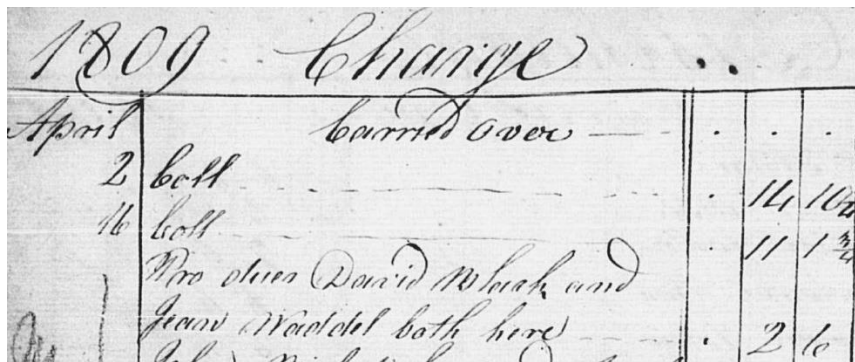 1809 Charge
April Carried Over
2 Coll 14 10
16 Coll 11 1 3/4
Pro dues David Black and
Jean Waddel both here 2 6